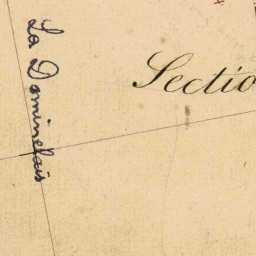 La Dominelais
Sectio